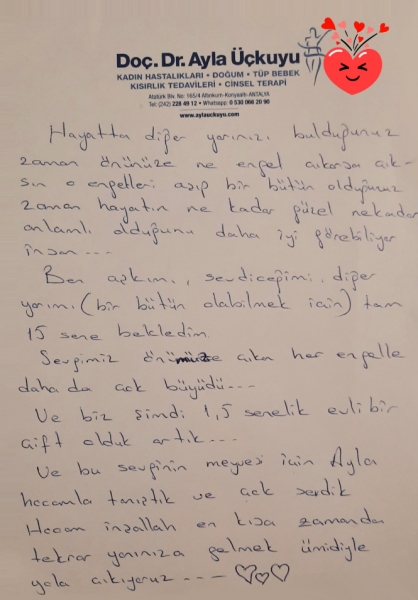 Doç. Dr. Ayla Üçkuyu
KADIN HASTALIKLARI • DOĞUM • TÜP BEBEK
KISIRLIK TEDAVİLERİ • CİNSEL TERAPİ
Atatürk Blv. No: 165/4 Altınkum-Konyaaltı-ANTALYA
Tel: (242) 228 49 12 • Whatsapp: 0 530 066 20 90
www.aylauckuyu.com
Hayatta diğer yarınızı bulduğunuz
zaman önünüze ne engel çıkarsa çık-
sın o engelleri aşıp bir bütün olduğunuz
zaman hayatın ne kadar güzel nekadar
anlamlı olduğunu daha iyi görebiliyor
insan ---
Ben aşkımı, sevdiceğimi, diğer
yarımı (bir bütün olabilmek için) tam
15 sene bekledim.
Sevgimiz önümüze çıkan her engelle
daha da çok büyüdü ---
Ve biz şimdi 1,5 senelik evli bir
çift olduk artık ---
Ve bu sevginin meyvesi için Ayla
hocamla tanıştık ve çok sevdik
Hocam inşallah en kısa zamanda
tekrar yanınıza gelmek ümidiyle
yola çıkıyoruz --- ♡♡♡